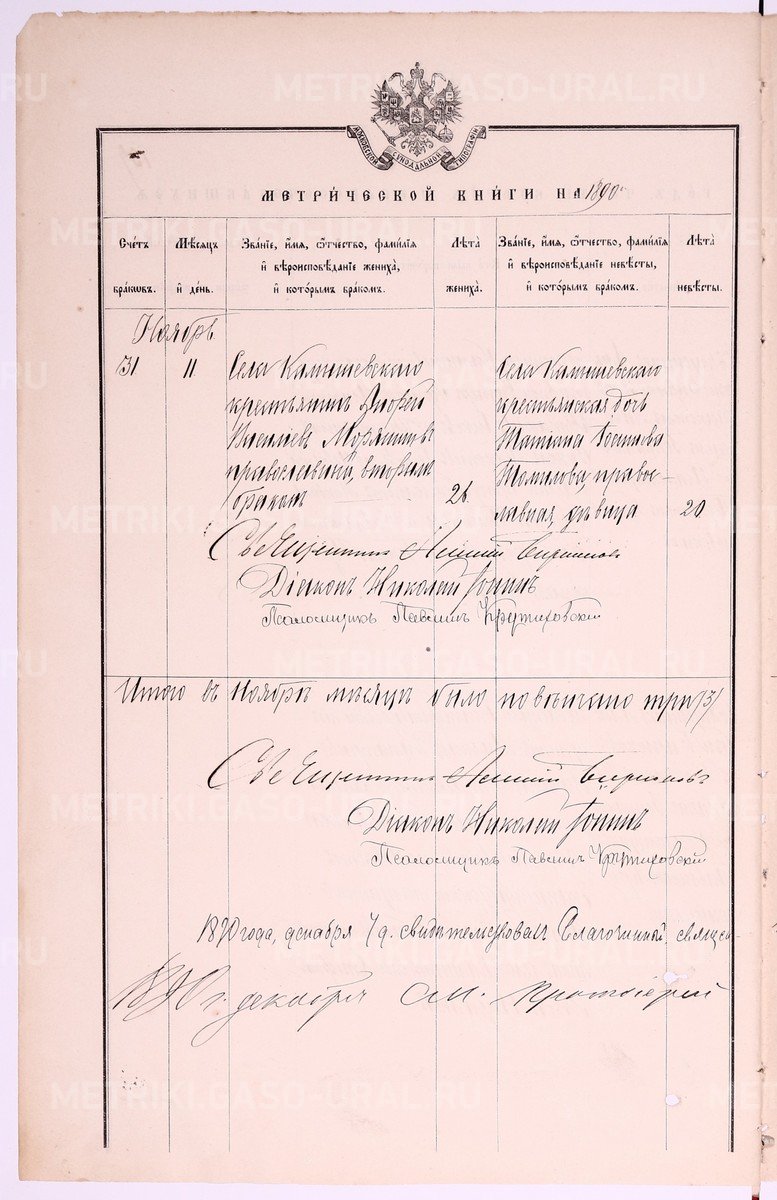 METRIKI.GASO-URAL.RU
МОСКОВСКОЙ СѴНОДАЛЬНОЙ ТИПОГРАФІИ
МЕТРИ́ЧЕСКОЙ КНИ́ГИ НА 1890
Сче́тъ бра́кѡвъ.
Мѣ́сѧцъ и҆ де́нь.
Зва́нїе, и҆́мѧ, ѻ҆́тчество, фами́лїѧ и҆ вѣроисповѣ́данїе жениха̀, и҆ кото́рымъ бра́комъ.
Лѣ́та жениха̀.
Зва́нїе, и҆́мѧ, ѻ҆́тчество, фами́лїѧ и҆ вѣроисповѣ́данїе невѣ́сты, и҆ кото́рымъ бра́комъ.
Лѣ́та невѣ́сты.
Ноябрь
31
11
Села Камышевскаго
крестьянинъ Андрей
Василіевъ
православный, вторымъ
бракомъ
26
Села Камышевскаго
крестьянская дочь
Татіана
Томилова, правос-
лавная, дѣвица
20
Священникъ
Діаконъ Николай Іонинъ
Псаломщикъ Павелъ Крутиховскій
Итого въ Ноябрѣ мѣсяцѣ было повѣнчано три /3/
Священникъ
Діаконъ Николай Іонинъ
Псаломщикъ Павелъ Крутиховскій
1890 года, декабря 7 д. свидѣтельствовалъ Благочинный свящ
1890 г. декабря см. протоіерей